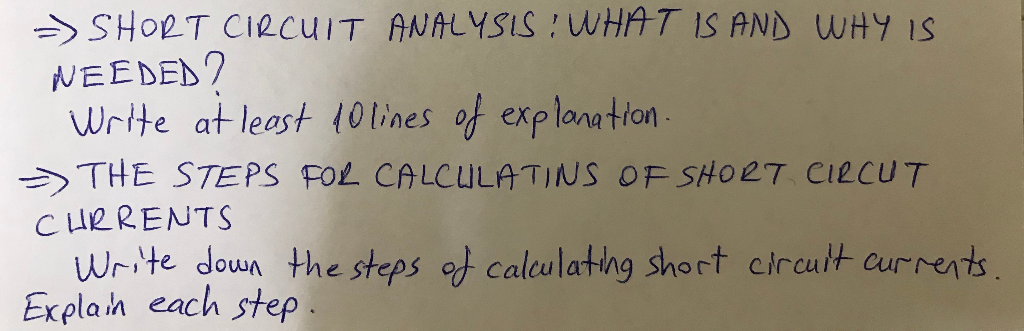 ⇒ SHORT CIRCUIT ANALYSIS : WHAT IS AND WHY IS
NEEDED?
Write at least 10 lines of explanation.
⇒ THE STEPS FOR CALCULATINS OF SHORT CIRCUT
CURRENTS
Write down the steps of calculating short circuit currents.
Explain each step.